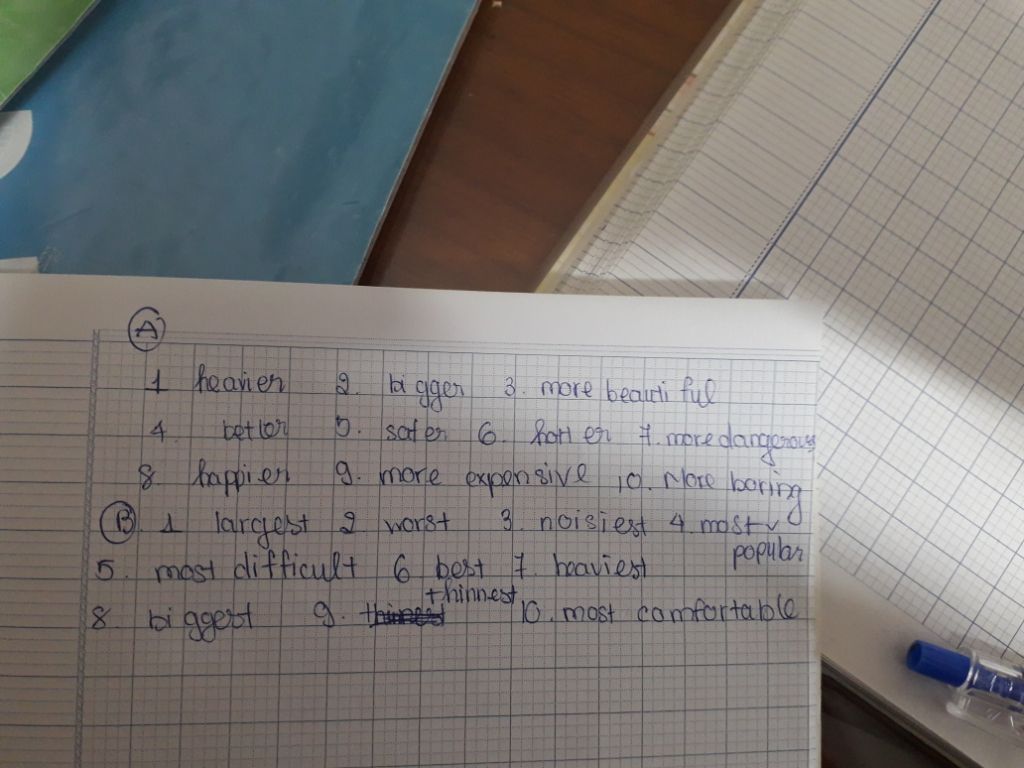 A
1 heavier 2. bigger 3. more beautiful
4. better 5. safer 6. hotter 7. more dangerous
8 happier 9. more expensive 10. More boring
B 1 largest 2 worst 3. noisiest 4. most
popular
5. most difficult 6 best 7. heaviest
thinnest
8 biggest 9. 10. most comfortable